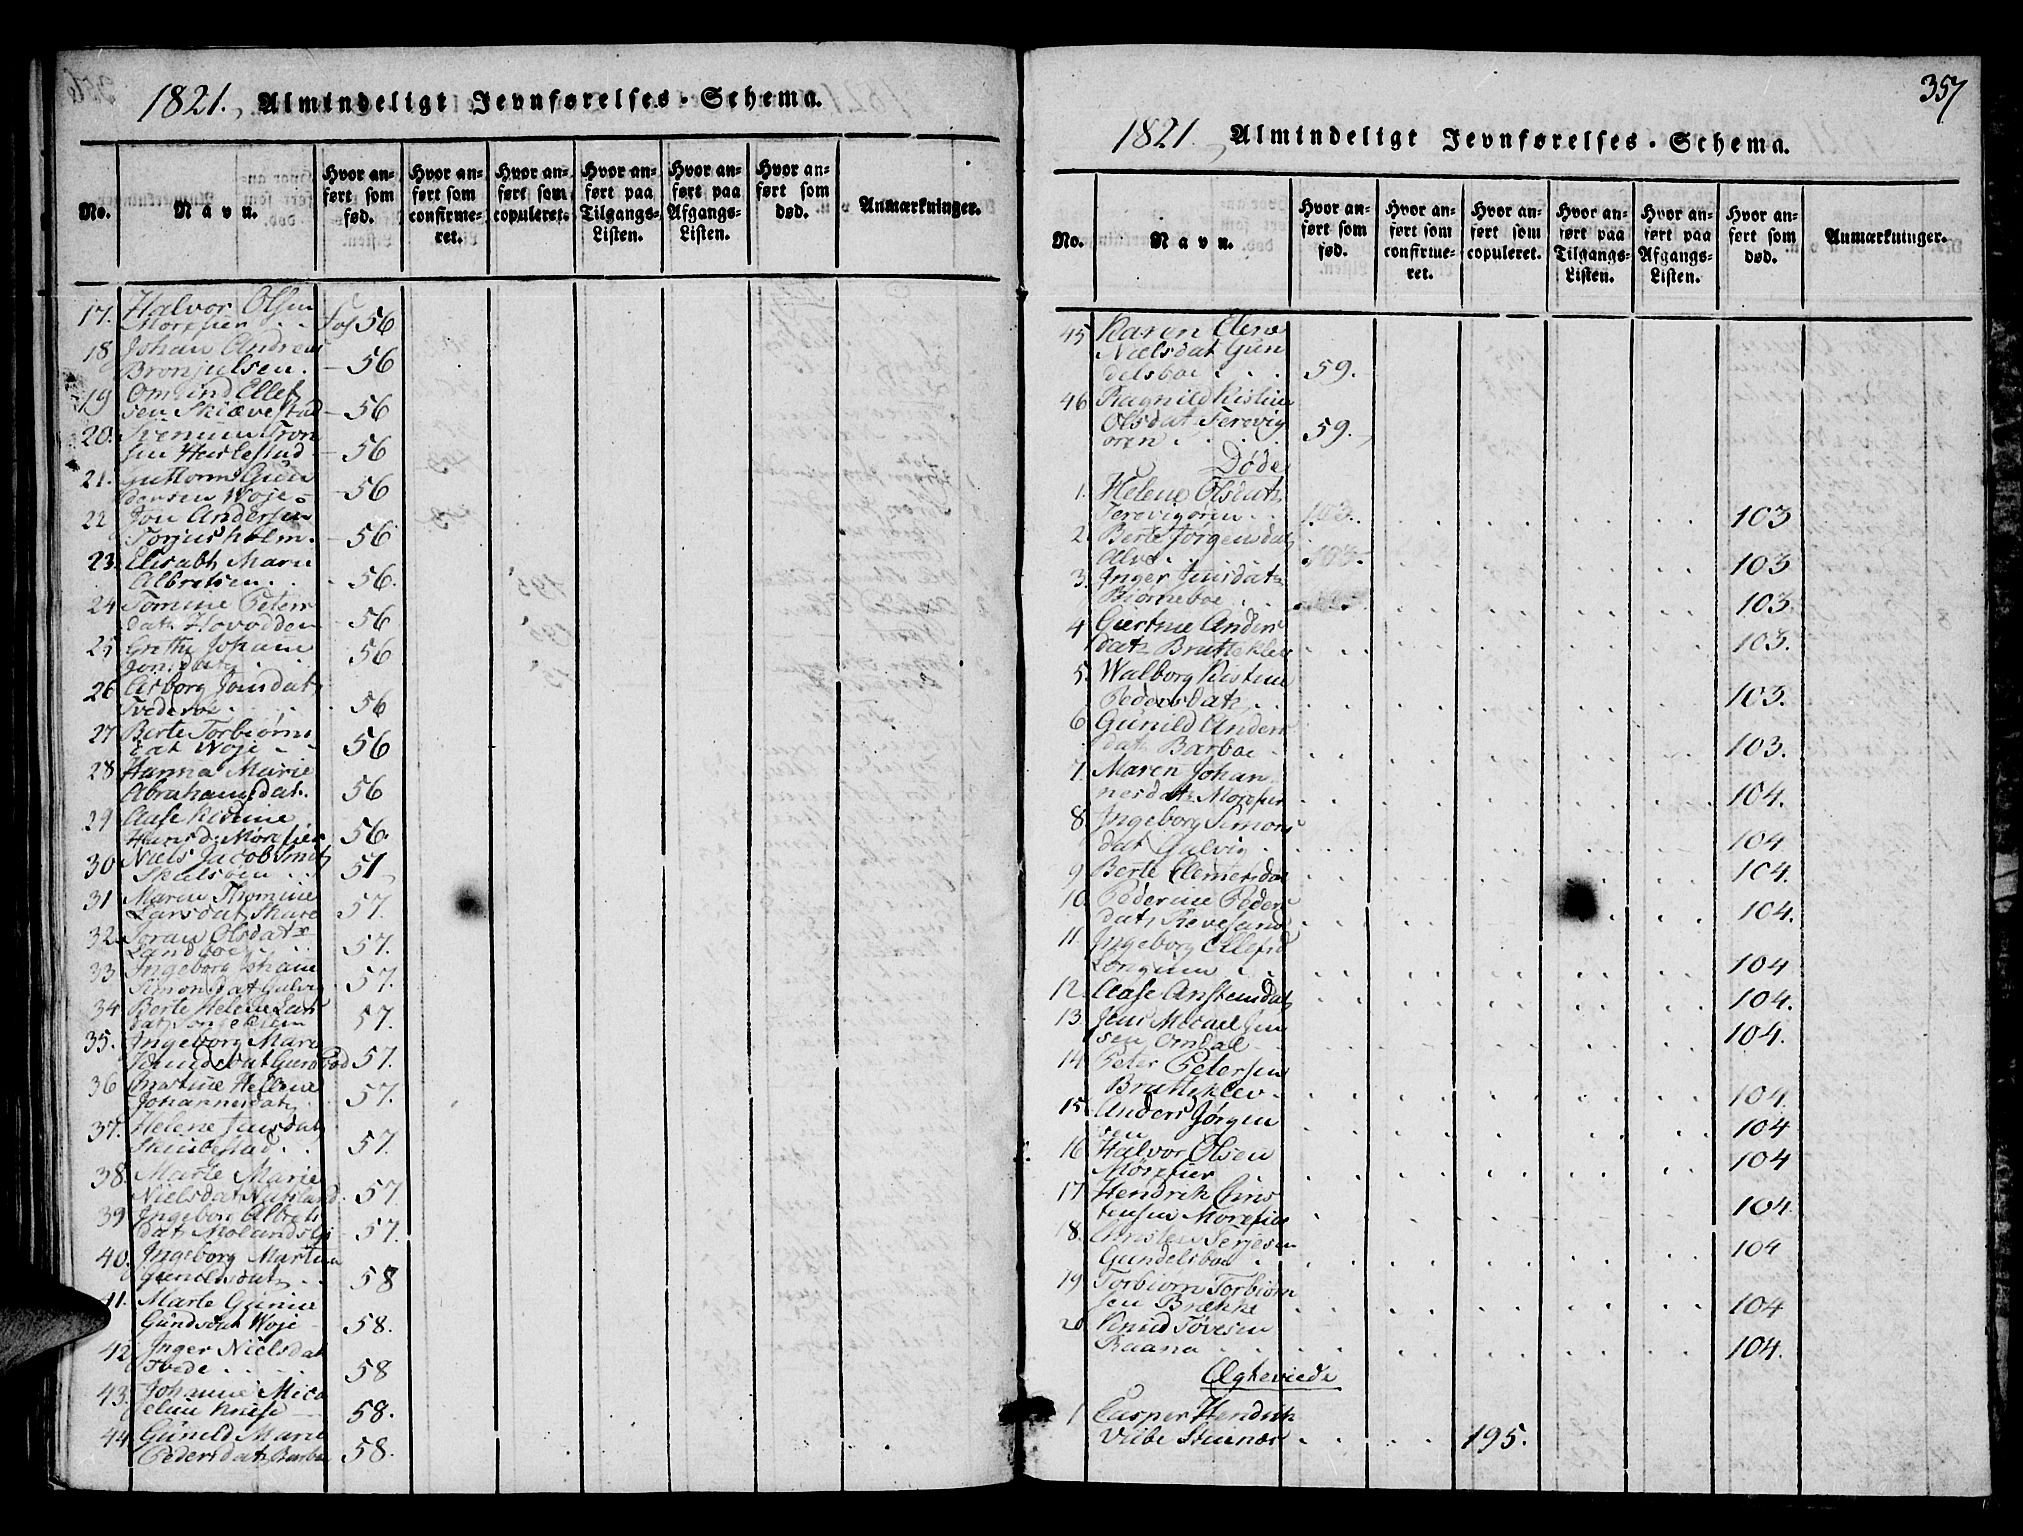 1821. Almindeligt Jevnførelses-Schema.
No.
Navn.
Hvor anført som fød.
Hvor anført som confirmeret.
Hvor anført som copuleret.
Hvor anført paa Tilgangs-Listen.
Hvor anført paa Afgangs-Listen.
Hvor anført som død.
Anmærkninger.
17. Halvor Olsen
Morefier . . fol 56
18 Johan Andreas
Bronjulsen. 56
19 Omund Ellef
sen Skiævestad 56
20.
sen Hustestad 56
21. Guttorm Gun
dersen Woje 56
22 Jon Andersen
Torjusholm. 56
23. Elisabth Marie
Albretsen . . 56.
24 Tomine Peters
dat Hovodden 56
25 Grethe Johanne
Jonsdat . . 56
26 Asborg Jonsdat
Tvedeboe . . 56
27 Berte Torbiørns
dat Woje - - 56
28 Hanna Marie
Abrahamsdat. 56
29 Aase Kirstine
Hansd: Morefier 56.
30 Niels Jacob Smit
57
31 Maren Thomine
Larsdat Skare 57.
32. Joran Olsdat
Landboe . . 57.
33 Ingeborg Johanne
Simonsdat Gulvig 57.
34 Berte Helene Lars
dat Songekleiv 57.
35. Ingeborg Mare
57.
36 Christine Hellene
Johannesdat . 57.
37. Helene Jensdat
57.
38. Marte Marie
Nielsdat Natland. 57.
39 Ingeborg Albrets
dat Molandsli 57.
40. Ingeborg Martine
Gunildsdat . . 58
41. Marte Gunie
Gundsdat Woje 58.
42. Inger Nielsdat
Tvede . . . 58
43. Johanne Mico
58.
44. Gunild Marie
Pedersdat Barboe 58.
357
1821. Almindeligt Jevnførelses-Schema.
No.
Navn.
Hvor anført som fød.
Hvor anført som confirmeret.
Hvor anført som copuleret.
Hvor anført paa Tilgangs-Listen.
Hvor anført paa Afgangs-Listen.
Hvor anført som død.
Anmærkninger.
45 Karen Elene
Nielsdat Gun
delsboe . . . 59.
46 Ragnild Kistine
Olsdat Terevig
oren . . . 59.
Døde
1. Helene Olsdat
Terevigøren . . 103
2. Berte Jørgensdat
Alve . 103
3. Inger Jensdat
Biorneboe . . 103.
4 Giertrue Anders
dat Bratteklev 103.
5. Walborg Kistine
Pedersdat . . 103.
6 Gunild Anders
dat Barboe . 103.
7. Maren Johan
nesdat Morefier 104.
8. Ingeborg Simons
dat Gulvig . 104
9 Berte Clemetsdat 104.
10. Pederine Peders
dat Revesand 104.
11. Ingeborg Ellefsd
Longum . . 104
12. Aase Anstensdat 104.
13. Jens Micael Jen
sen Omdal 104.
14 Peter Petersen
Bratteklev. 104.
15. Anders Jørgen
sen 104
16 Halvor Olsen
Mørefier 104
17 Hendrik Chris
tensen Morefier 104.
18. Christen Terjesen
Gundelsboe . 104
19 Torbiorn Torbiørn
sen Brække 104
20 Knud Tovesen
Raana . . . 104.
Ægteviede
1 Casper Hendrik
Vibe 195.